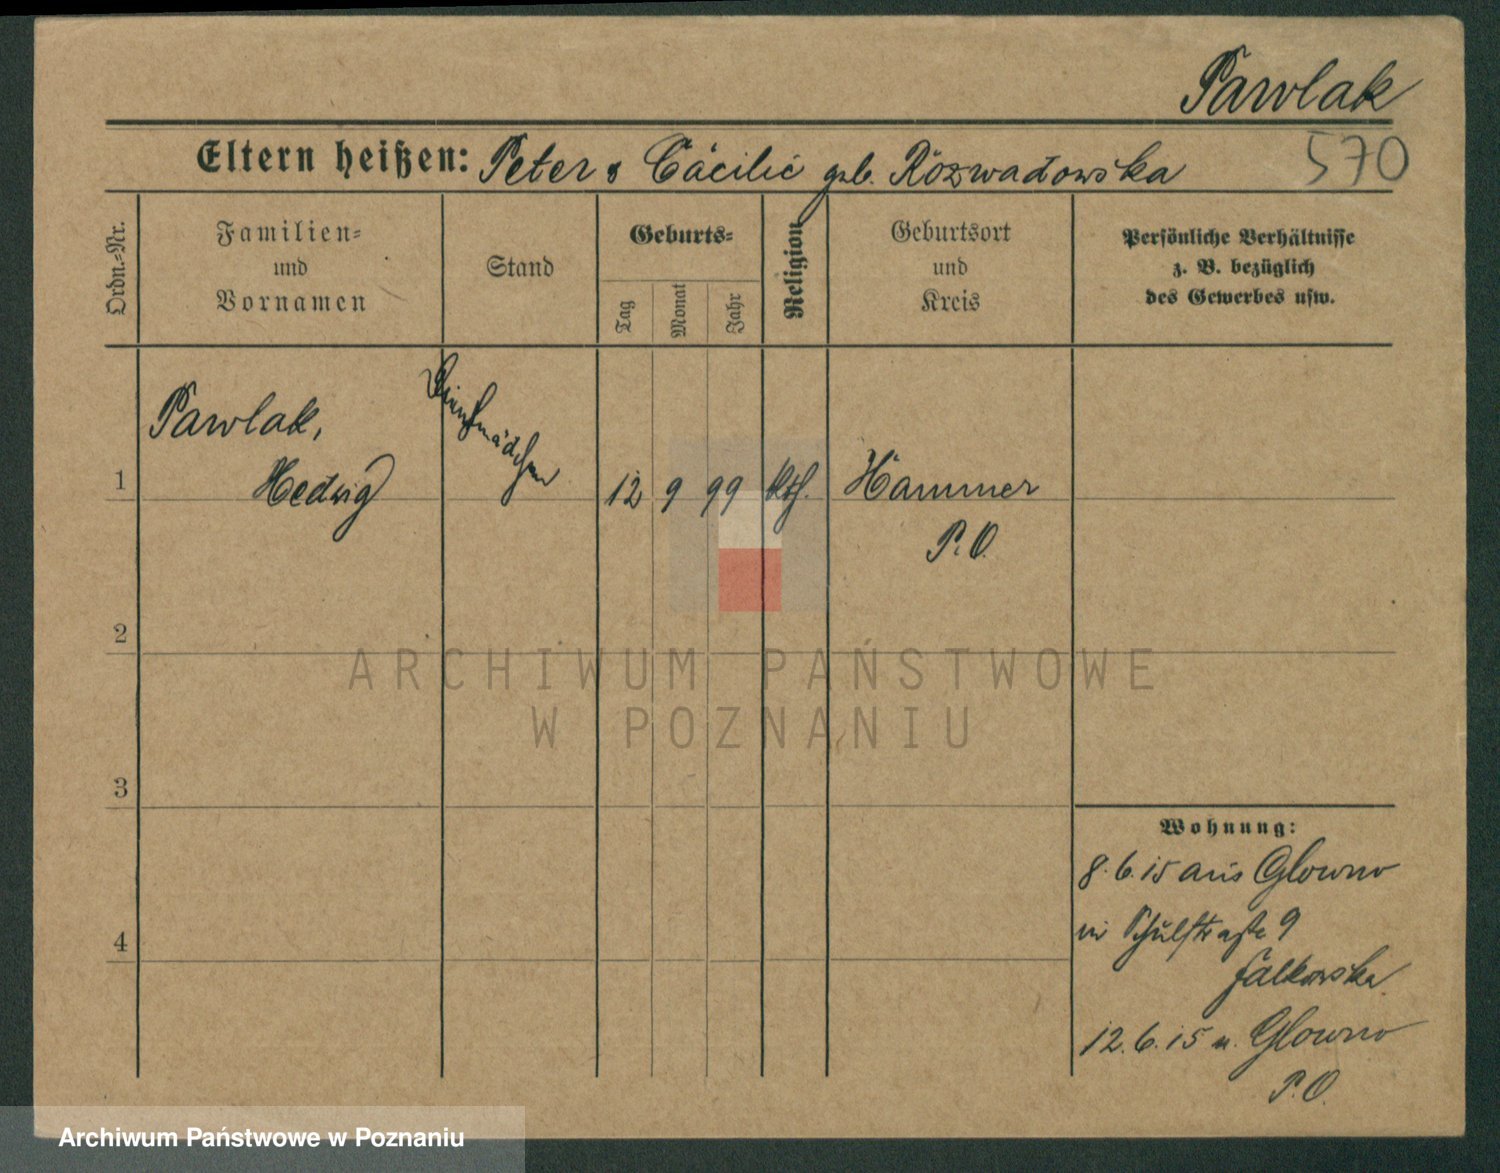 Pawlak
Eltern heißen: Peter & Cäcilie geb. Rozwadowska
570
Ordn.-Nr.
Familien-
und
Vornamen
Stand
Geburts-
Tag
Monat
Jahr
Religion
Geburtsort
und
Kreis
Persönliche Verhältnisse
z. B. bezüglich
des Gewerbes usw.
1
Pawlak,
Hedwig
Dienstmädchen
12 9 99 kth.
Hammer
P. O.
2
3
4
Wohnung:
8. 6. 15 aus Glowno
in Schulstraße 9
Falkowska
12. 6. 15 n. Glowno
P. O.
ARCHIWUM PAŃSTWOWE
W POZNANIU
Archiwum Państwowe w Poznaniu